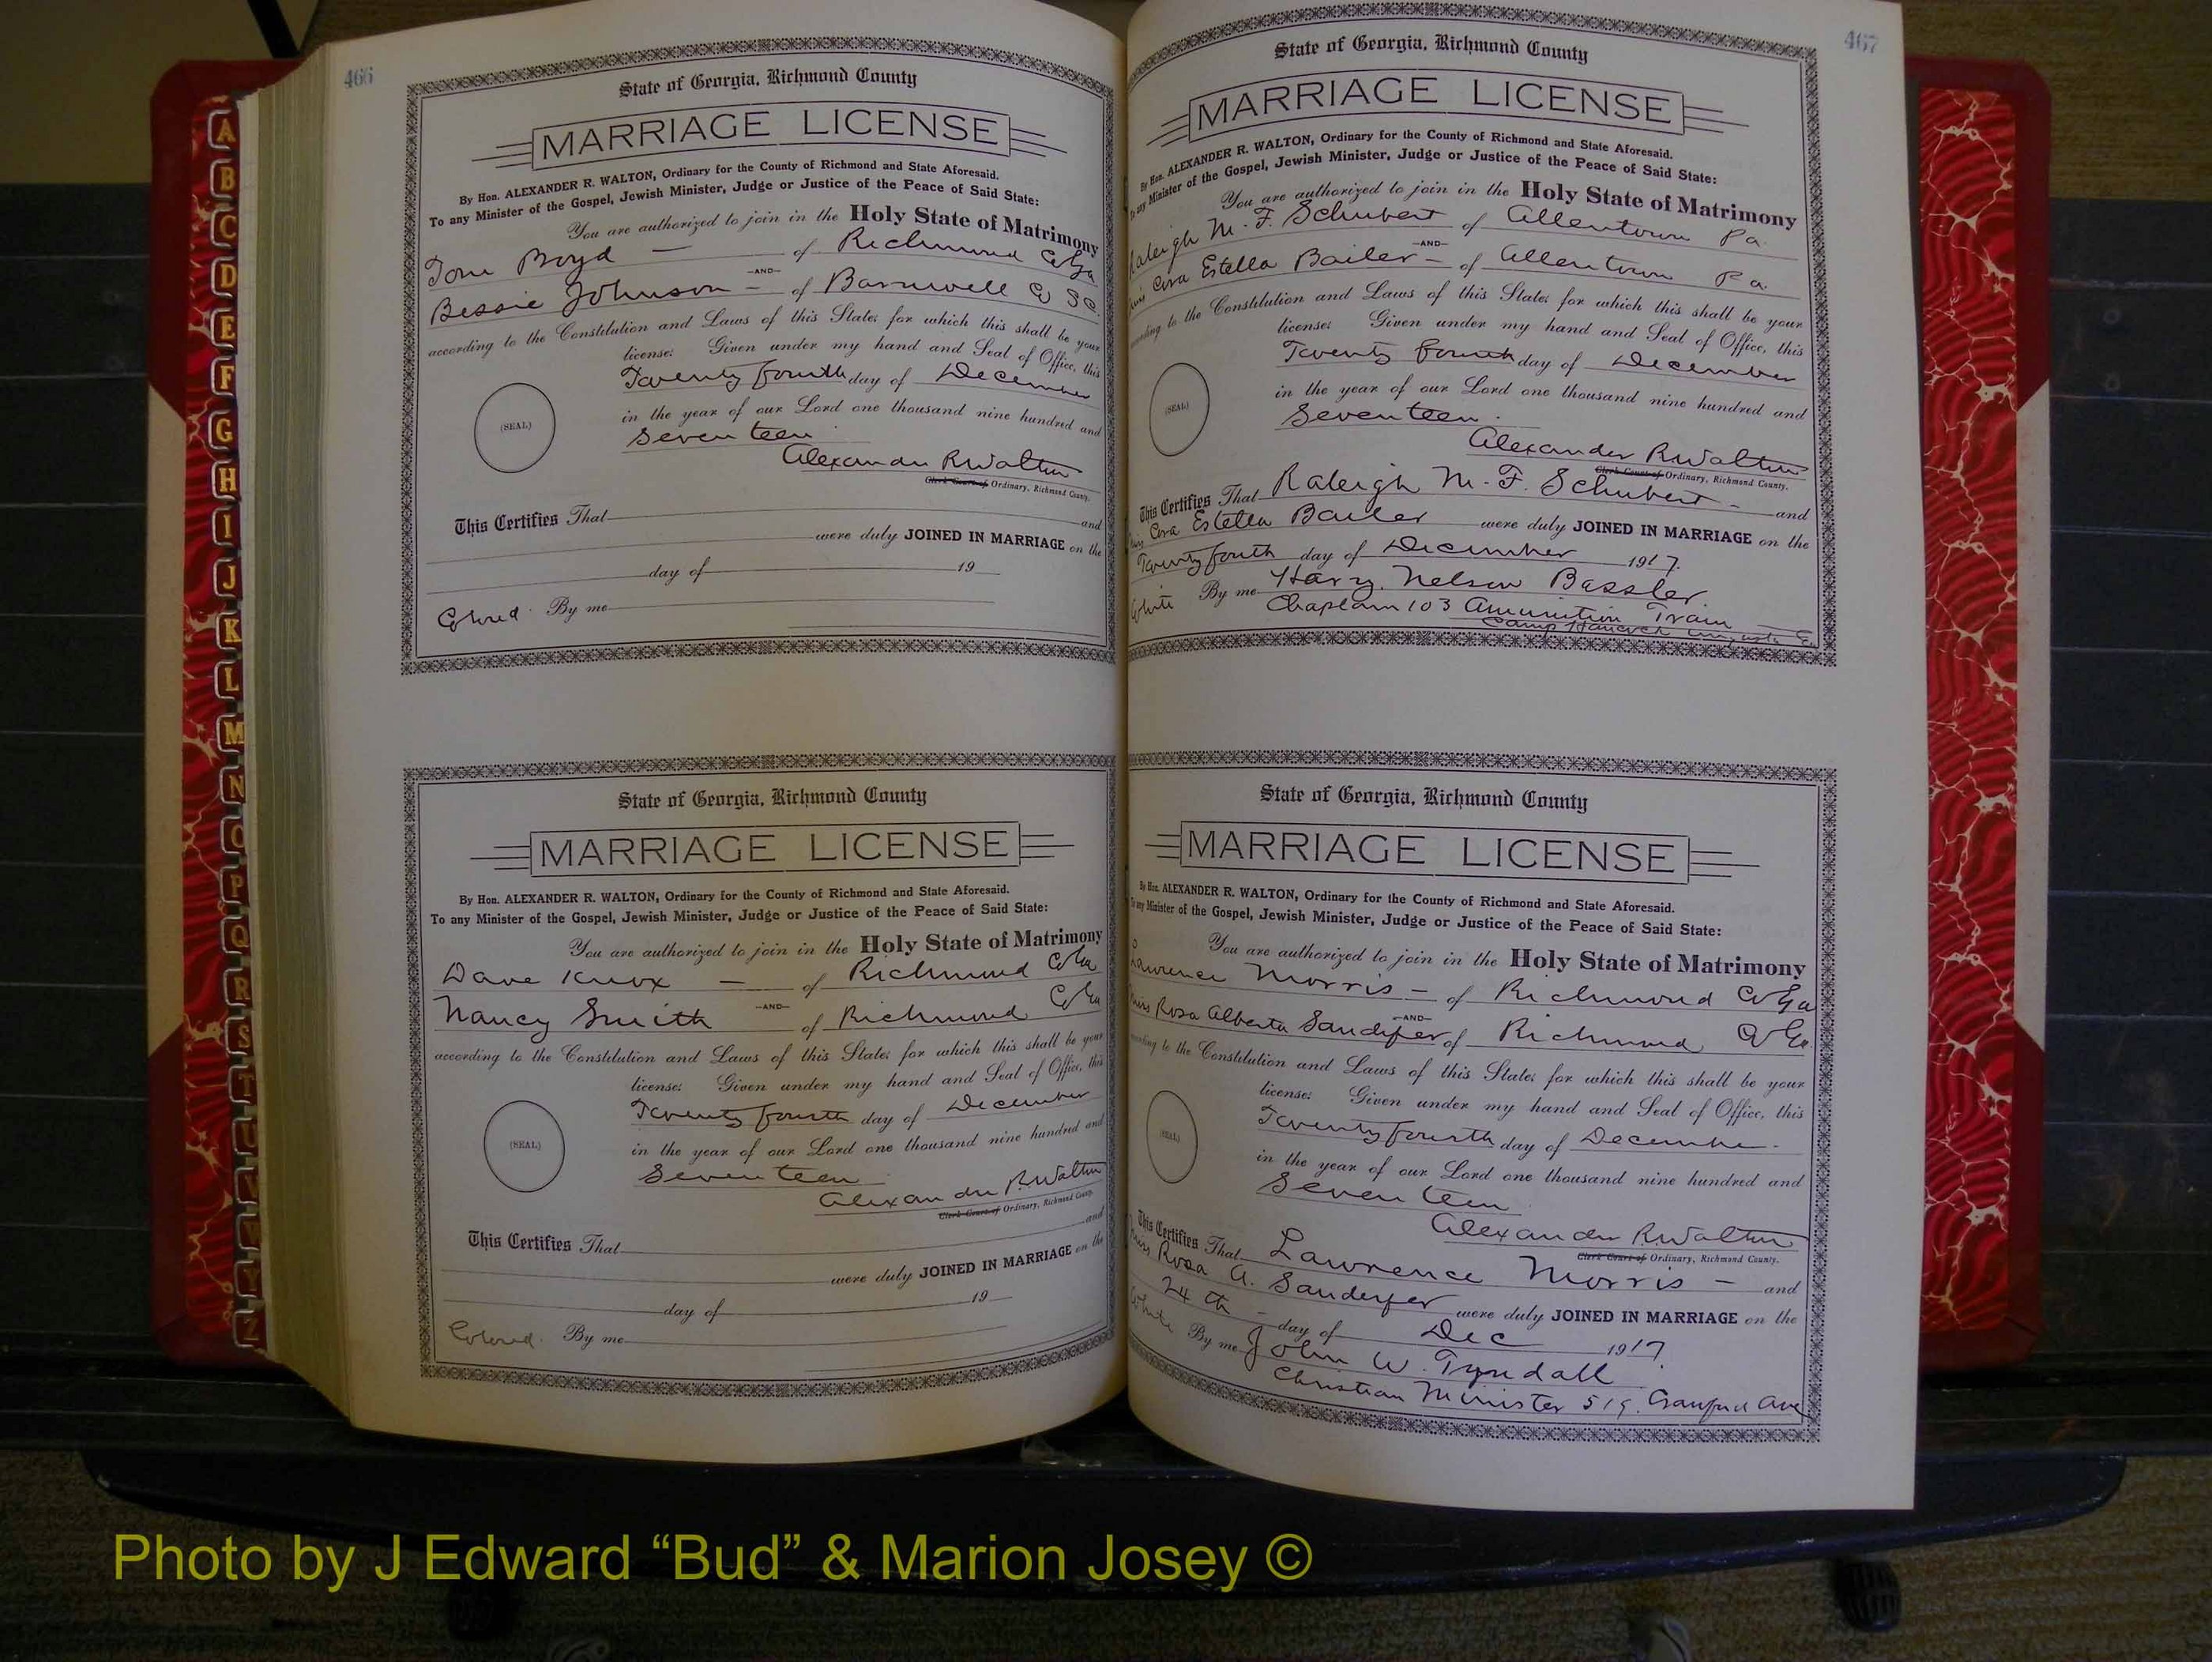 466
State of Georgia, Richmond County
MARRIAGE LICENSE
By Hon. ALEXANDER R. WALTON, Ordinary for the County of Richmond and State Aforesaid.
To any Minister of the Gospel, Jewish Minister, Judge or Justice of the Peace of Said State:
You are authorized to join in the Holy State of Matrimony
Tom Boyd — of Richmond Co Ga
—AND—
Bessie Johnson — of Barnwell Co SC.
according to the Constitution and Laws of this State; for which this shall be your
license: Given under my hand and Seal of Office, this
Twenty fourth day of December
in the year of our Lord one thousand nine hundred and
(SEAL)
Seventeen
Alexander R Walton
Clerk Court of Ordinary, Richmond County.
This Certifies That and
were duly JOINED IN MARRIAGE on the
day of 19
Colored By me
State of Georgia, Richmond County
MARRIAGE LICENSE
By Hon. ALEXANDER R. WALTON, Ordinary for the County of Richmond and State Aforesaid.
To any Minister of the Gospel, Jewish Minister, Judge or Justice of the Peace of Said State:
You are authorized to join in the Holy State of Matrimony
Dave Knox — of Richmond Co Ga
—AND—
Nancy Smith of Richmond Co Ga
according to the Constitution and Laws of this State; for which this shall be your
license: Given under my hand and Seal of Office, this
Twenty fourth day of December
(SEAL)
in the year of our Lord one thousand nine hundred and
Seventeen
Alexander R Walton
Clerk Court of Ordinary, Richmond County.
This Certifies That and
were duly JOINED IN MARRIAGE on the
day of 19
Colored. By me
467
State of Georgia, Richmond County
MARRIAGE LICENSE
By Hon. ALEXANDER R. WALTON, Ordinary for the County of Richmond and State Aforesaid.
to any Minister of the Gospel, Jewish Minister, Judge or Justice of the Peace of Said State:
You are authorized to join in the Holy State of Matrimony
Raleigh M. F. Schubert of Allentown Pa.
—AND—
Miss Cora Estella Bailer — of Allentown Pa.
according to the Constitution and Laws of this State; for which this shall be your
license: Given under my hand and Seal of Office, this
Twenty fourth day of December
in the year of our Lord one thousand nine hundred and
(SEAL)
Seventeen.
Alexander R Walton
Clerk Court of Ordinary, Richmond County.
This Certifies That Raleigh M. F. Schubert — and
Miss Cora Estella Bailer were duly JOINED IN MARRIAGE on the
Twenty fourth day of December 1917.
White By me Harry Nelson Bassler
Chaplain 103 Amunition Train
Camp Hancock Augusta Ga
State of Georgia, Richmond County
MARRIAGE LICENSE
By Hon. ALEXANDER R. WALTON, Ordinary for the County of Richmond and State Aforesaid.
To any Minister of the Gospel, Jewish Minister, Judge or Justice of the Peace of Said State:
You are authorized to join in the Holy State of Matrimony
Lawrence Morris — of Richmond Co Ga
—AND—
Miss Rosa Alberta Sandifer of Richmond Co Ga.
according to the Constitution and Laws of this State; for which this shall be your
license: Given under my hand and Seal of Office, this
Twenty fourth day of December
(SEAL)
in the year of our Lord one thousand nine hundred and
Seventeen
Alexander R. Walton
Clerk Court of Ordinary, Richmond County.
This Certifies That Lawrence Morris — and
Miss Rosa A. Sanderfer were duly JOINED IN MARRIAGE on the
24th — day of Dec 1917.
White By me John W. Tyndall
Christian Minister 519. Crawford Ave
A
B
C
D
E
F
G
H
I
J
K
L
M
N
O
P
Q
R
S
T
U
Y
Z
Photo by J Edward “Bud” & Marion Josey ©